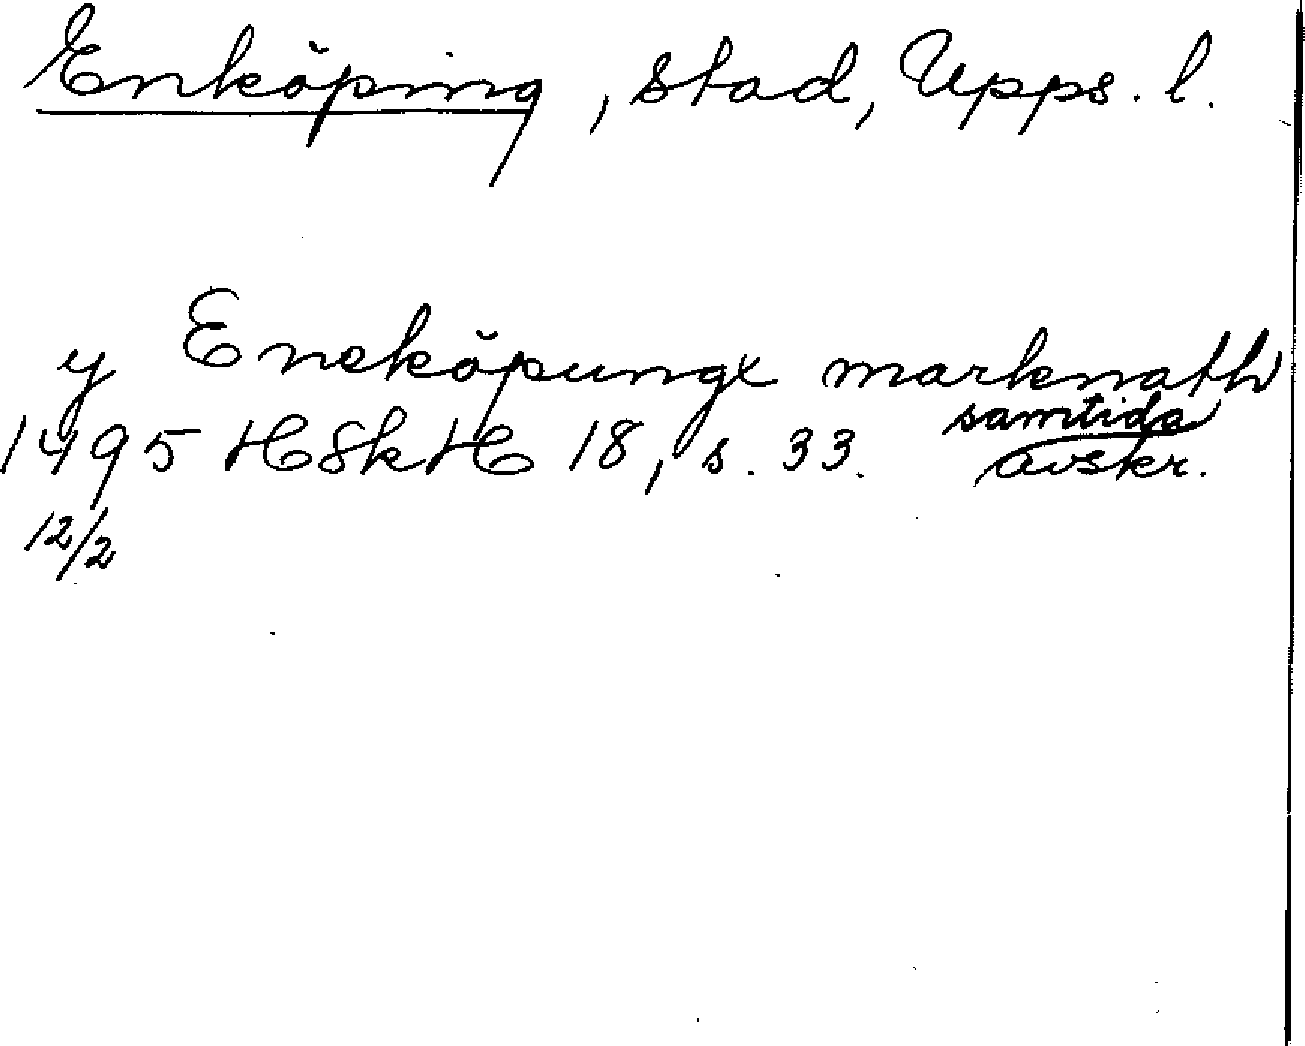 Enköping, stad, Upps. l.
y Eneköpungx marknath
1495 HSkH 18, s. 33. samtida avskr.
12/2